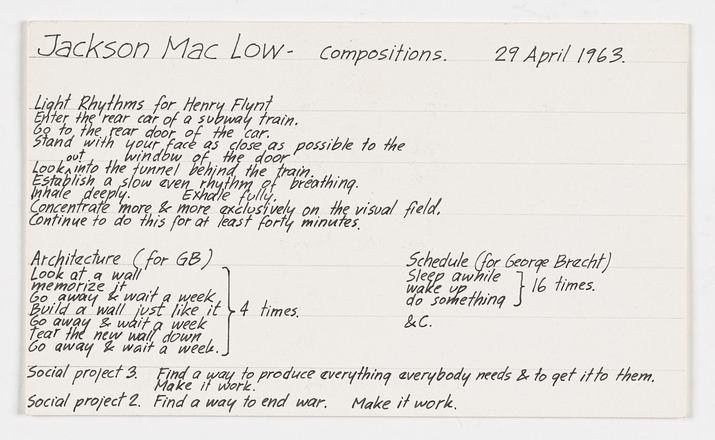 Jackson Mac Low - Compositions. 29 April 1963.
Light Rhythms for Henry Flynt
Enter the rear car of a subway train.
Go to the rear door of the car.
Stand with your face as close as possible to the
window of the door
Look out into the tunnel behind the train.
Establish a slow even rhythm of breathing.
Inhale deeply. Exhale fully.
Concentrate more & more exclusively on the visual field.
Continue to do this for at least forty minutes.
Architecture (for GB)
Look at a wall
memorize it
Go away & wait a week
Build a wall just like it
Go away & wait a week
Tear the new wall down
Go away & wait a week.
4 times.
Schedule (for George Brecht)
Sleep awhile
wake up
do something
16 times.
&C.
Social project 3. Find a way to produce everything everybody needs & to get it to them.
Make it work.
Social project 2. Find a way to end war. Make it work.